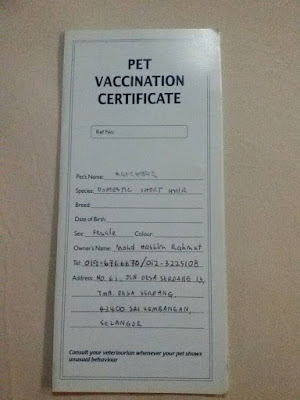 PET
VACCINATION
CERTIFICATE
Ref No:
Pet's Name:
Species: DOMESTIC SHORT HAIR
Breed:
Date of Birth:
Sex: Female Colour:
Owner's Name: Mohd Hashim Rahmat
Tel: 019-6766670/012-3225108
Address: NO. 61, JLN DESA SERDANG 13,
TMN. DESA SERDANG,
43400 SRI KEMBANGAN,
SELANGOR
Consult your veterinarian whenever your pet shows
unusual behaviour